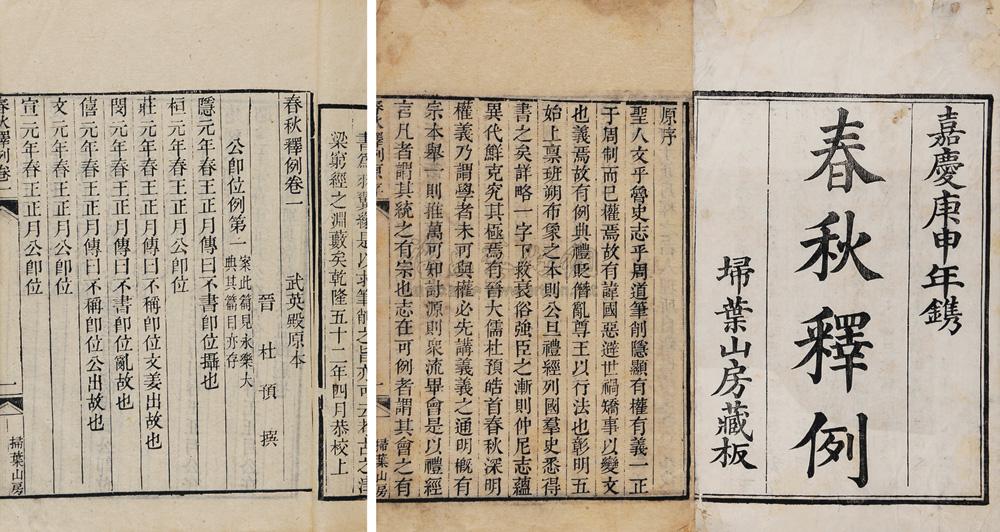 嘉慶庚申年鐫
春秋釋例
掃葉山房藏板
原序
聖人文乎魯史志乎周道筆削隱顯有權有義一正
于周制而已權焉故有諱國惡避世禍矯事以變文
也義焉故有例典禮貶僭亂尊王以行法也彰明五
始上禀班朔布象之本則公旦禮經列國羣史悉得
書之矣詳略一字下救衰俗強臣之漸則仲尼志蘊
異代鮮克究其極焉有晉大儒杜預皓首春秋深明
權義乃謂學者未可與權必先講義義之通明概有
宗本舉一則推萬可知討源則衆流畢會是以禮經
言凡者謂其統之有宗也志在可例者謂其會之有
掃葉山房
梁窮經之淵藪矣乾隆五十二年四月恭校上
春秋釋例卷一 武英殿原本
晉 杜 預 撰
公卽位例第一 案此篇見永樂大
典其篇目亦存
隱元年春王正月傳曰不書卽位攝也
桓元年春王正月公卽位
莊元年春王正月傳曰不稱卽位文姜出故也
閔元年春王正月傳曰不書卽位亂故也
僖元年春王正月傳曰不稱卽位公出故也
文元年春王正月公卽位
宣元年春王正月公卽位
春秋釋例卷一 一 掃葉山房